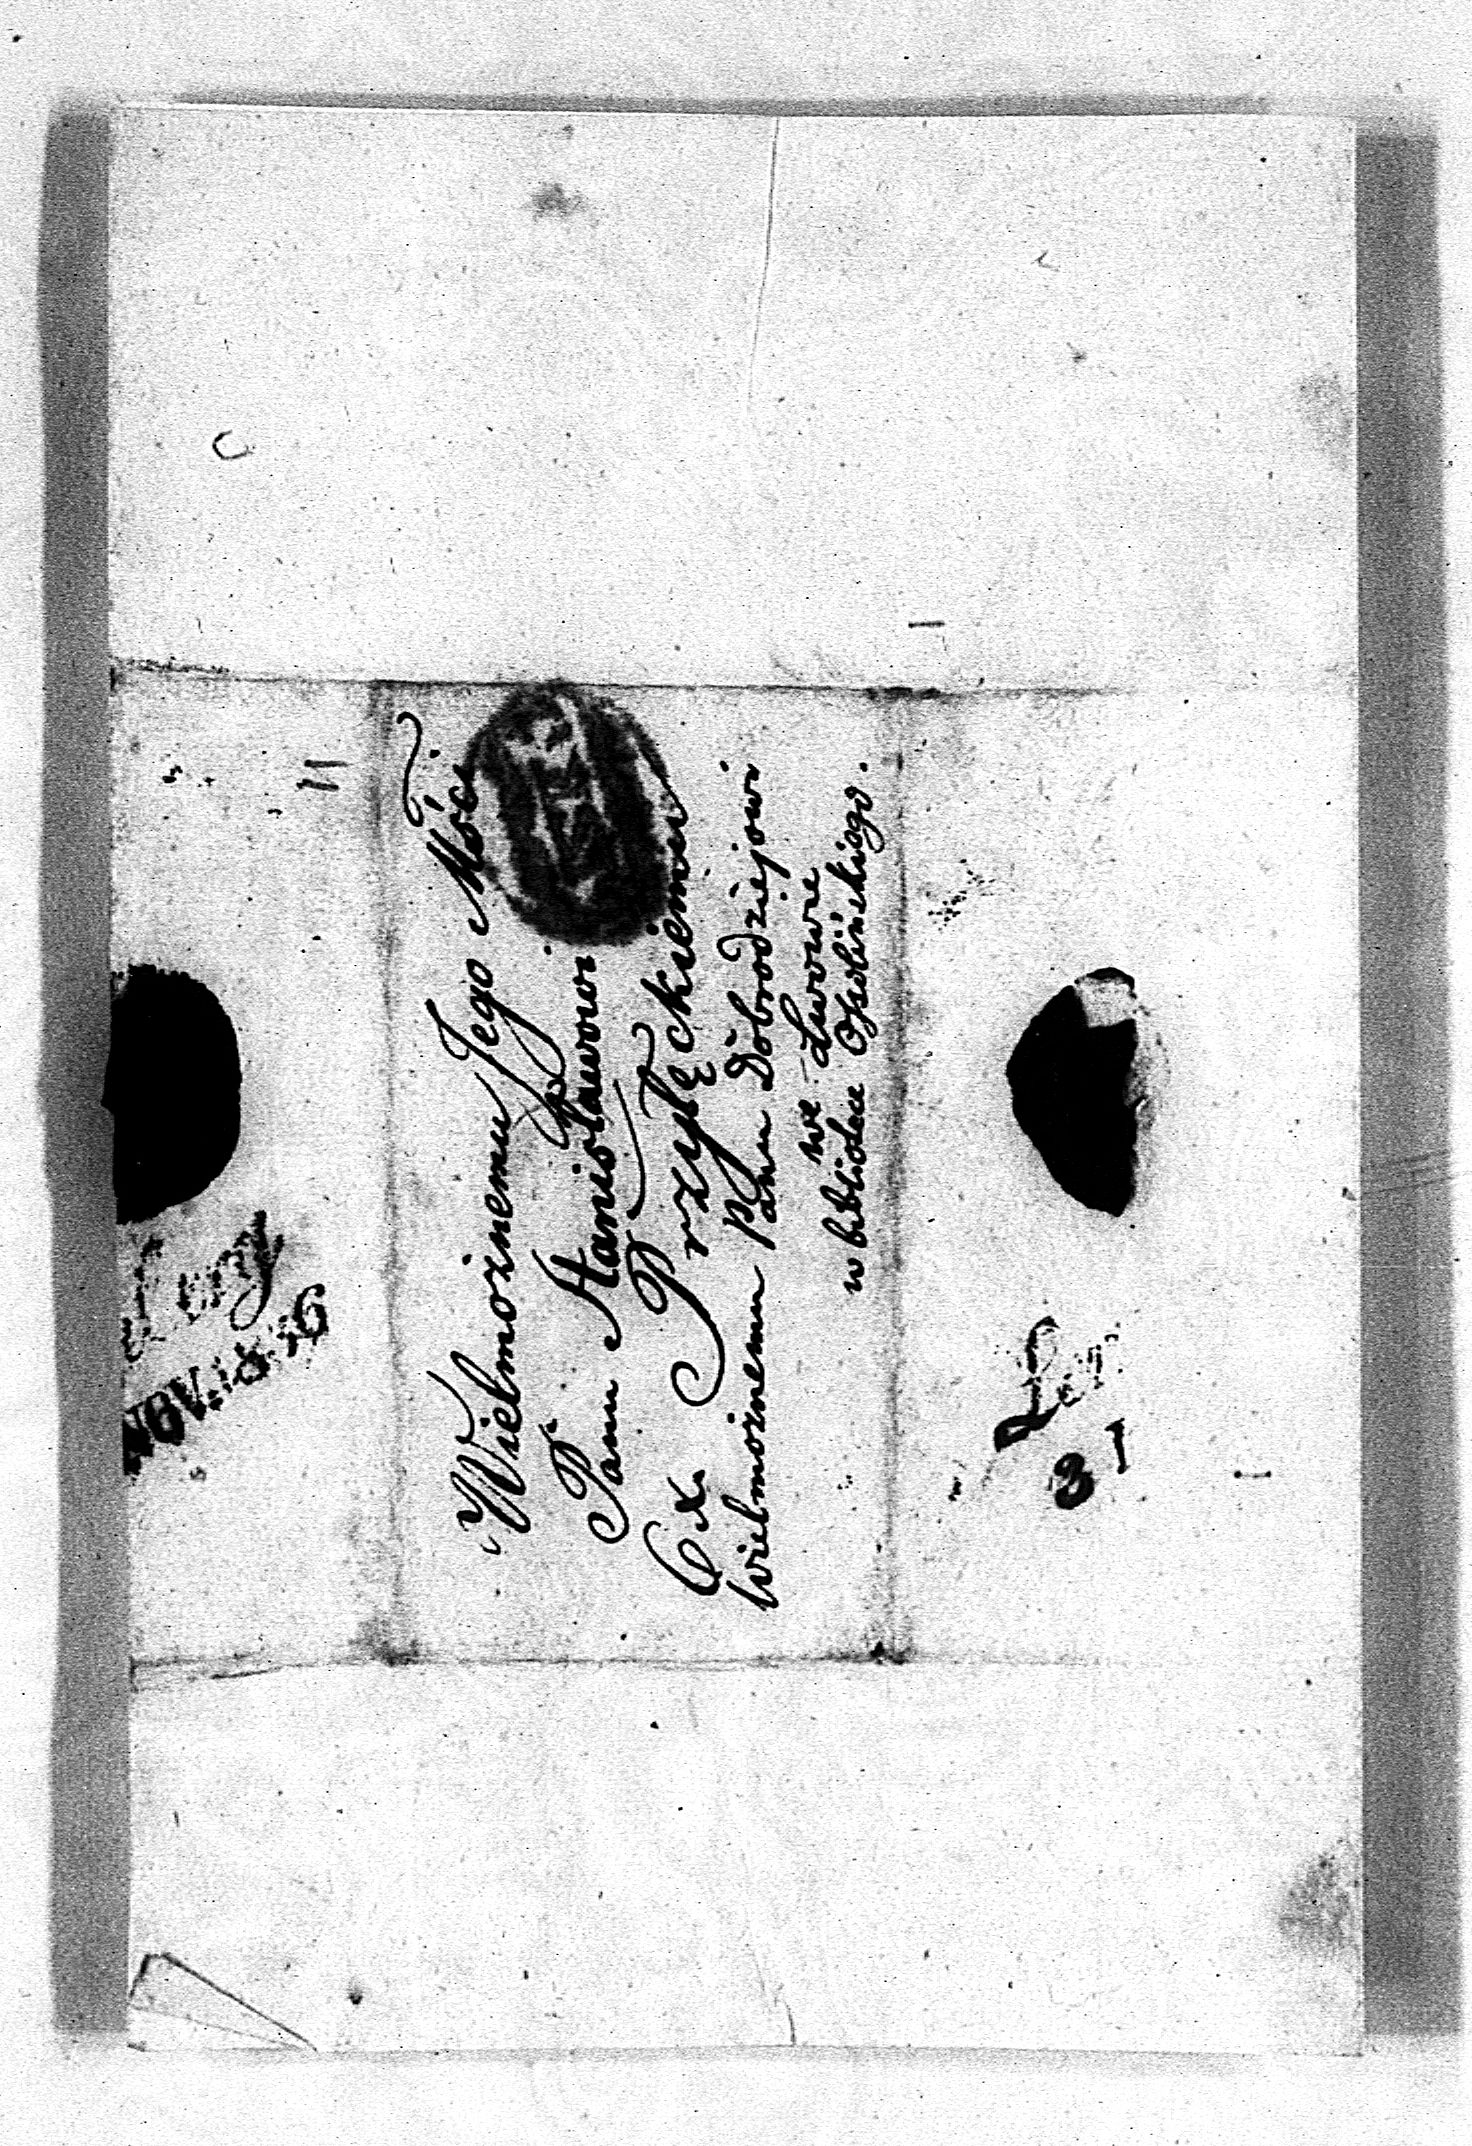 Wielmożnemu Jego Mości
Panu Stanisławowi
Przyłęckiemu
Wielmożnemu Panu Dobrodziejowi
we Lwowie
w bibliotece Ossolińskiego.
NOV.
31